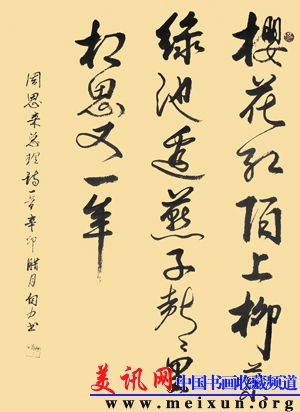 櫻花红陌上柳葉
緑池邊燕子聲々里
相思又一年
周恩来总理诗一首辛卯腊月书
美讯网 中国书画收藏频道
www.meixun.org